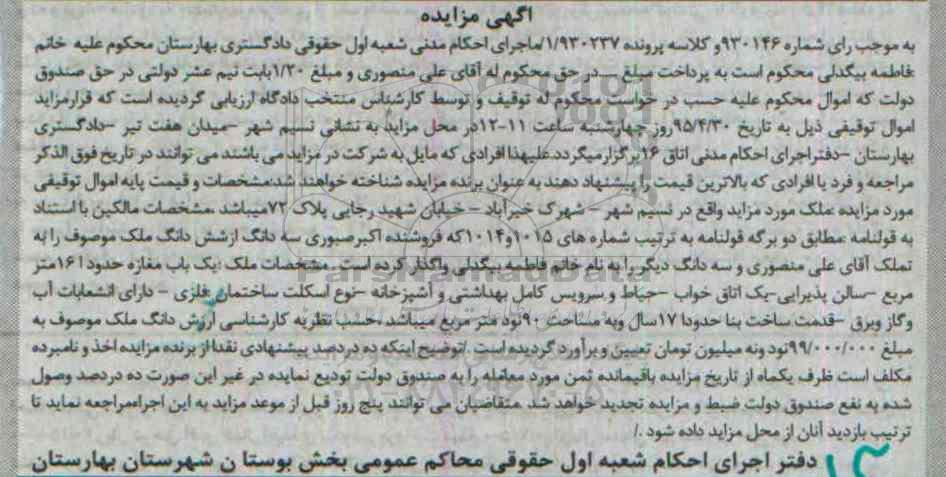 اگهی مزایده
به موجب رای شماره ۹۳۰۱۴۶و کلاسه پرونده ۱/۹۳۰۲۳۷/ماجرای احکام مدنی شعبه اول حقوقی دادگستری بهارستان محکوم علیه خانم
فاطمه بیگدلی محکوم است به پرداخت مبلغ – در حق محکوم له آقای علی منصوری و مبلغ ۱/۲۰بابت نیم عشر دولتی در حق صندوق
دولت که اموال محکوم علیه حسب در خواست محکوم له توقیف و توسط کارشناس منتخب دادگاه ارزیابی گردیده است که قرارمزاید
اموال توقیفی ذیل به تاریخ ۹۵/۴/۳۰روز چهارشنبه ساعت ۱۱-۱۲در محل مزاید به نشانی نسیم شهر –میدان هفت تیر –دادگستری
بهارستان –دفتراجرای احکام مدنی اتاق ۱۶برگزارمیگردد.علیهذا افرادی که مایل به شرکت در مزاید می باشند می توانند در تاریخ فوق الذکر
مراجعه و فرد یا افرادی که بالاترین قیمت را پیشنهاد دهند به عنوان برنده مزایده شناخته خواهند شد:مشخصات و قیمت پایه اموال توقیفی
مورد مزایده :ملک مورد مزاید واقع در نسیم شهر – شهرک خیرآباد – خیابان شهید رجایی پلاک ۷۲میباشد .مشخصات مالکین با استناد
به قولنامه :مطابق دو برگه قولنامه به ترتیب شماره های ۱۰۱۵و۱۰۱۴که فروشنده اکبرصبوری سه دانگ ازشش دانگ ملک موصوف را به
تملک آقای علی منصوری و سه دانگ دیگر را به نام خانم فاطمه بیگدلی واگذار کرده است . مشخصات ملک :یک باب مغازه حدودا ۱۶متر
مربع –سالن پذیرایی-یک اتاق خواب –حیاط و سرویس کامل بهداشتی و آشپزخانه –نوع اسکلت ساختمان فلزی – دارای انشعابات آب
وگاز وبرق –قدمت ساخت بنا حدودا ۱۷سال وبه مساحت ۹۰نود متر مربع میباشد .حسب نظریه کارشناسی ارزش دانگ ملک موصوف به
مبلغ ۹۹/۰۰۰/۰۰۰نود ونه میلیون تومان تعیین و برآورد گردیده است ./توضیح اینکه ده درصد پیشنهادی نقدا از برنده مزایده اخذ و نامبرده
مکلف است ظرف یکماه از تاریخ مزایده باقیمانده ثمن مورد معامله را به صندوق دولت تودیع نمایده در غیر این صورت ده درصد وصول
شده به نفع صندوق دولت ضبط و مزایده تجدید خواهد شد .متقاضیان می توانند پنج روز قبل از موعد مزاید به این اجراءمراجعه نماید تا
ترتیب بازدید آنان از محل مزاید داده شود ./
دفتر اجرای احکام شعبه اول حقوقی محاکم عمومی بخش بوستا ن شهرستان بهارستان
ParsNamadData